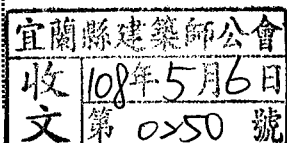 宜蘭縣建築師公會
收文
108年5月6日
第 0250 號